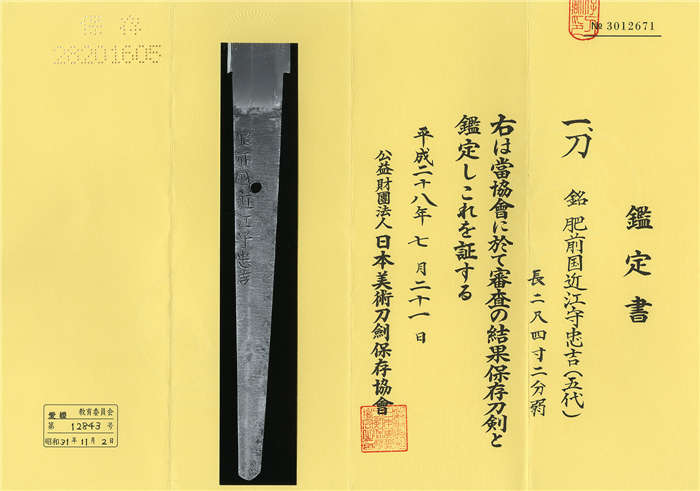 № 3012671
鑑定書
一、刀
銘 肥前国近江守忠吉(五代)
長二尺四寸二分弱
右は當協會に於て審査の結果保存刀剣と
鑑定しこれを証する
平成二十八年 七月二十一日
公益財團法人 日本美術刀劍保存協會
肥前國近江守忠吉
保存
28201605
愛媛 教育委員会
第 12843 号
昭和31年11月2日